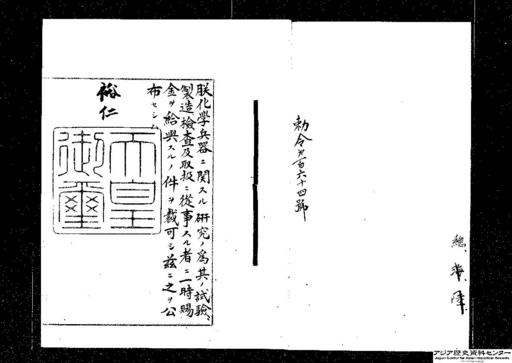 勅令第百六十四號
総、海、陸、
朕化學兵器ニ関スル研究ノ為其ノ試驗、
製造檢査及取扱ニ從事スル者ニ一時賜
金ヲ給與スルノ件ヲ裁可シ茲ニ之ヲ公
布セシム
裕仁
天皇
御璽
アジア歴史資料センター
Japan Center for Asian Historical Records